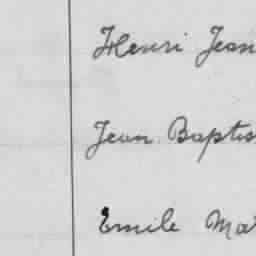 Henri Jean
Jean Baptis
Emile Ma